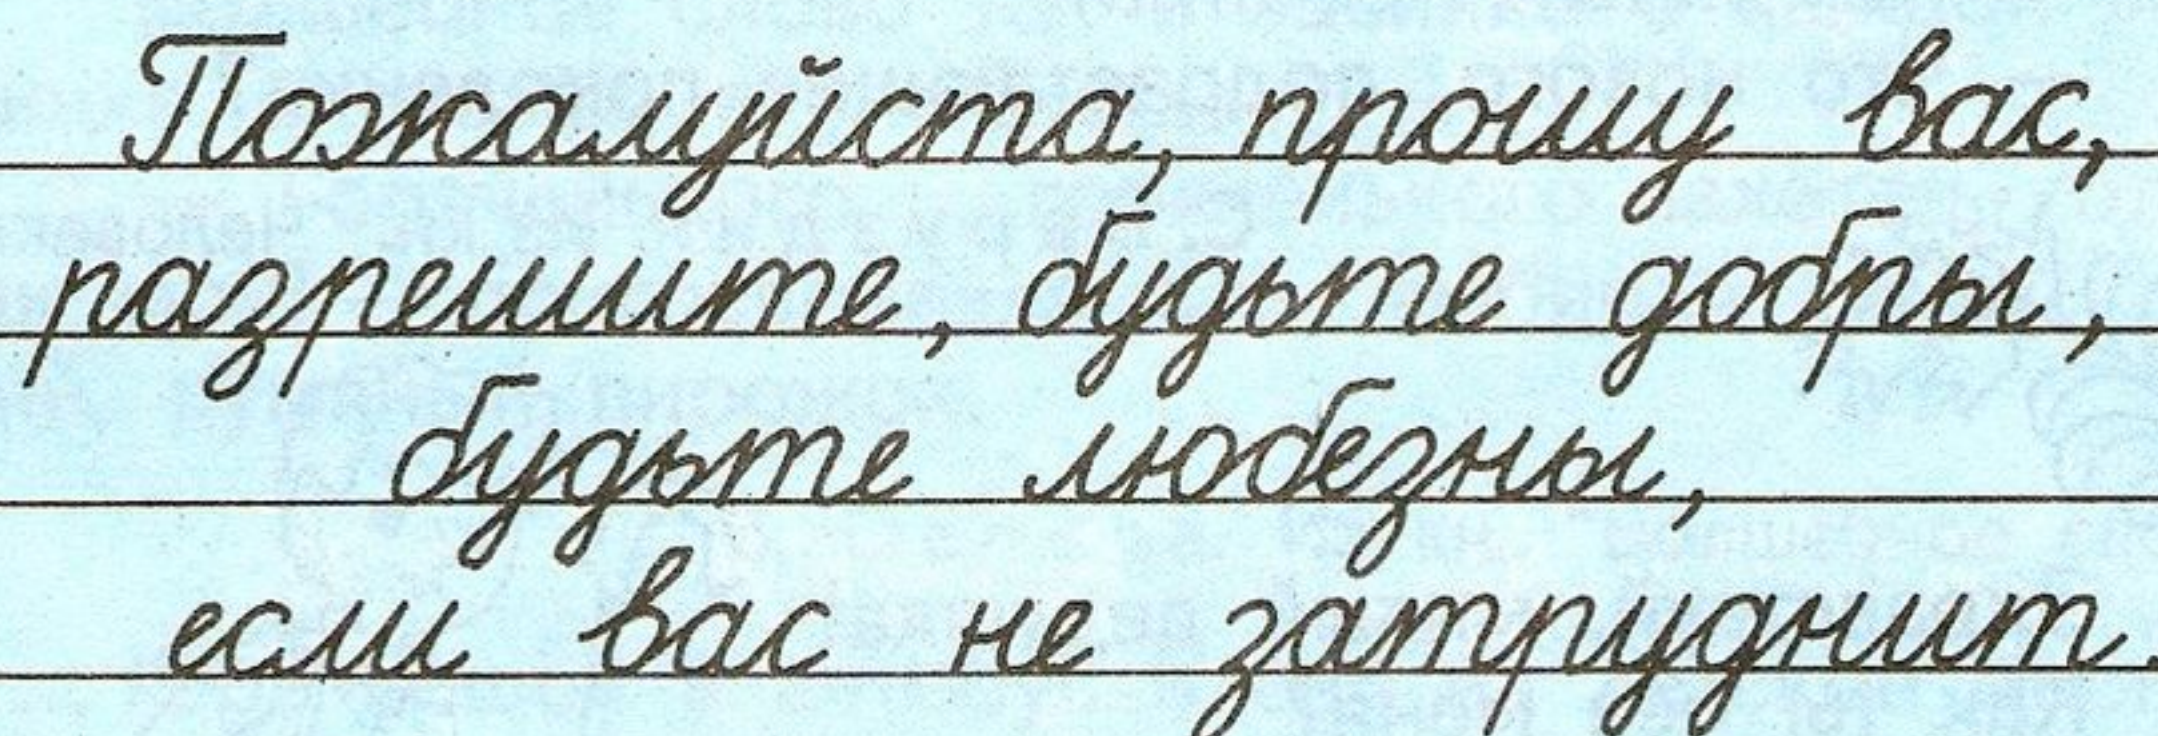 Пожалуйста, прошу вас,
разрешите, будьте добры,
будьте любезны,
если вас не затруднит.